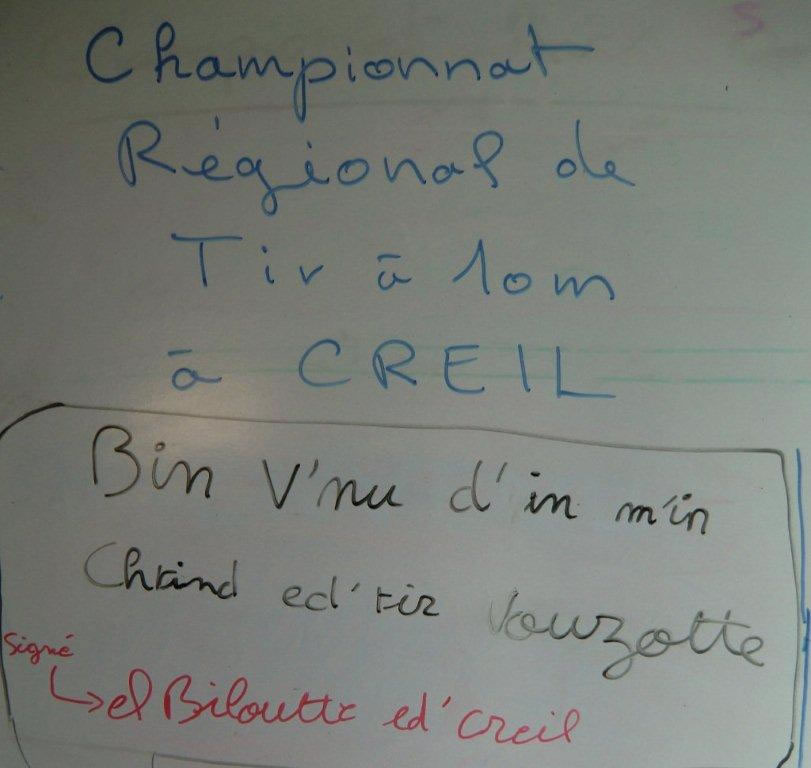 Championnat
Régional de
Tir à 10m
à CREIL
Bin V'nu d'in m'in
Chtind ed'tir Vouzotte
Signé
el Biloutte ed' Creil